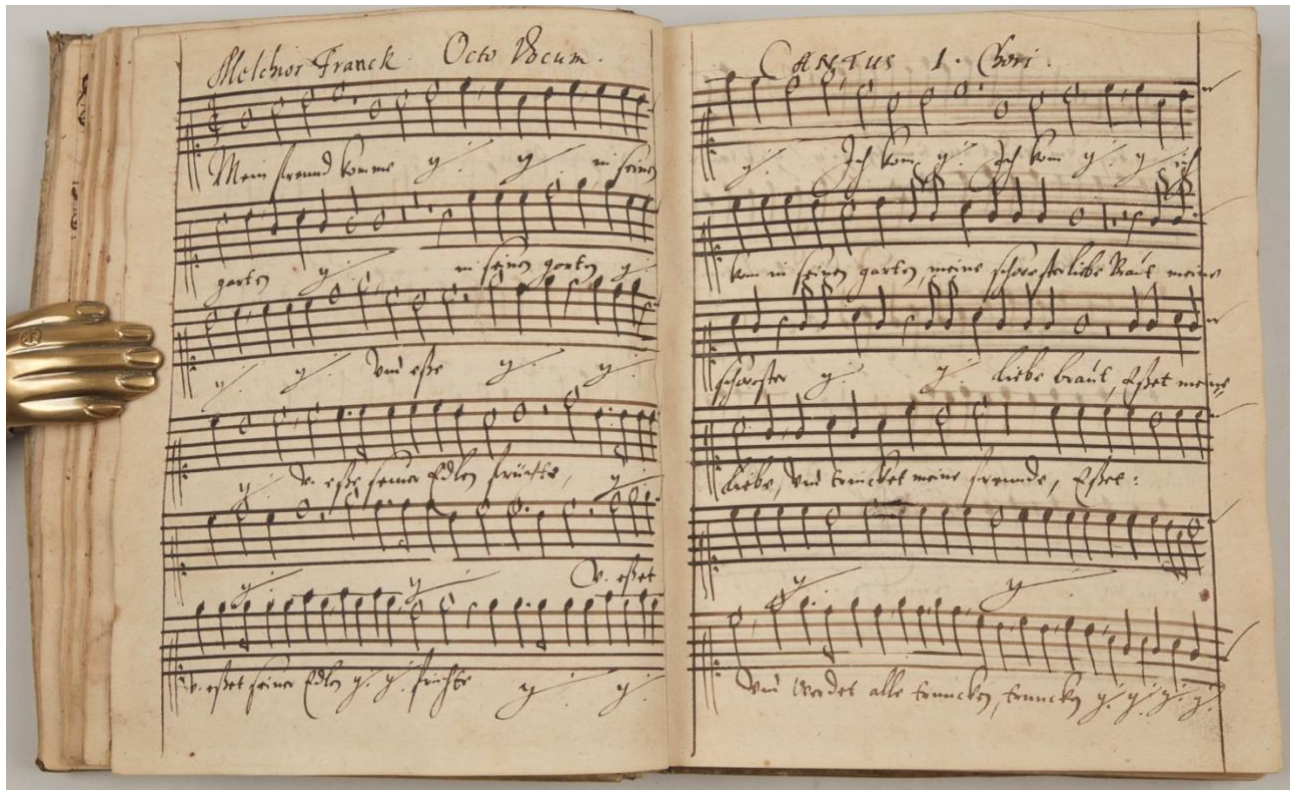 Melchior Franck Octo Vocum.
Mein freund komme ij. ij. in seinen
garten ij. in seinen garten ij.
ij. ij. und eße ij. ij.
ij. v. eße seiner Edlen früchte, ij.
ij. ij. v. eßet
v. eßet seiner Edlen ij. ij. früchte ij. ij.
CANTUS 1. Chori.
ij. Ich kom ij. Ich kom ij. ij. ich
kom in seinen garten, meine schwester liebe Braut meine
schwester ij. ij. liebe braut, Eßet meine
liebe, und trincket meine freunde, Eßet:
ij. ij.
und werdet alle truncken, truncken ij. ij. ij. ij.